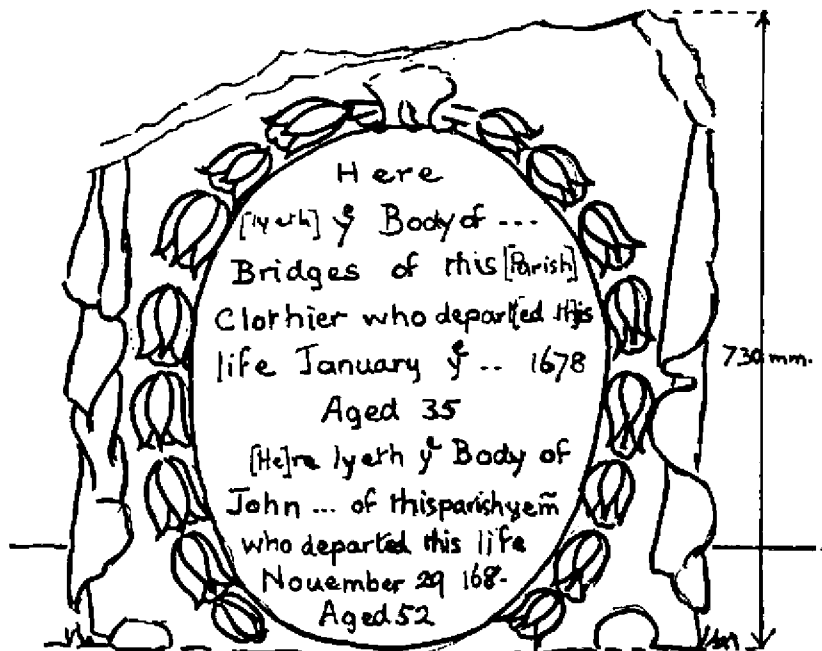 Here
[lyeth] yᵉ Body of ---
Bridges of this [Parish]
Clothier who depart[ed th]is
life January yᵉ .. 1678
Aged 35
[He]re lyeth yᵉ Body of
John ... of thisparishyem̃
who departed this life
Nouember 29 168-
Aged 52
730 mm.